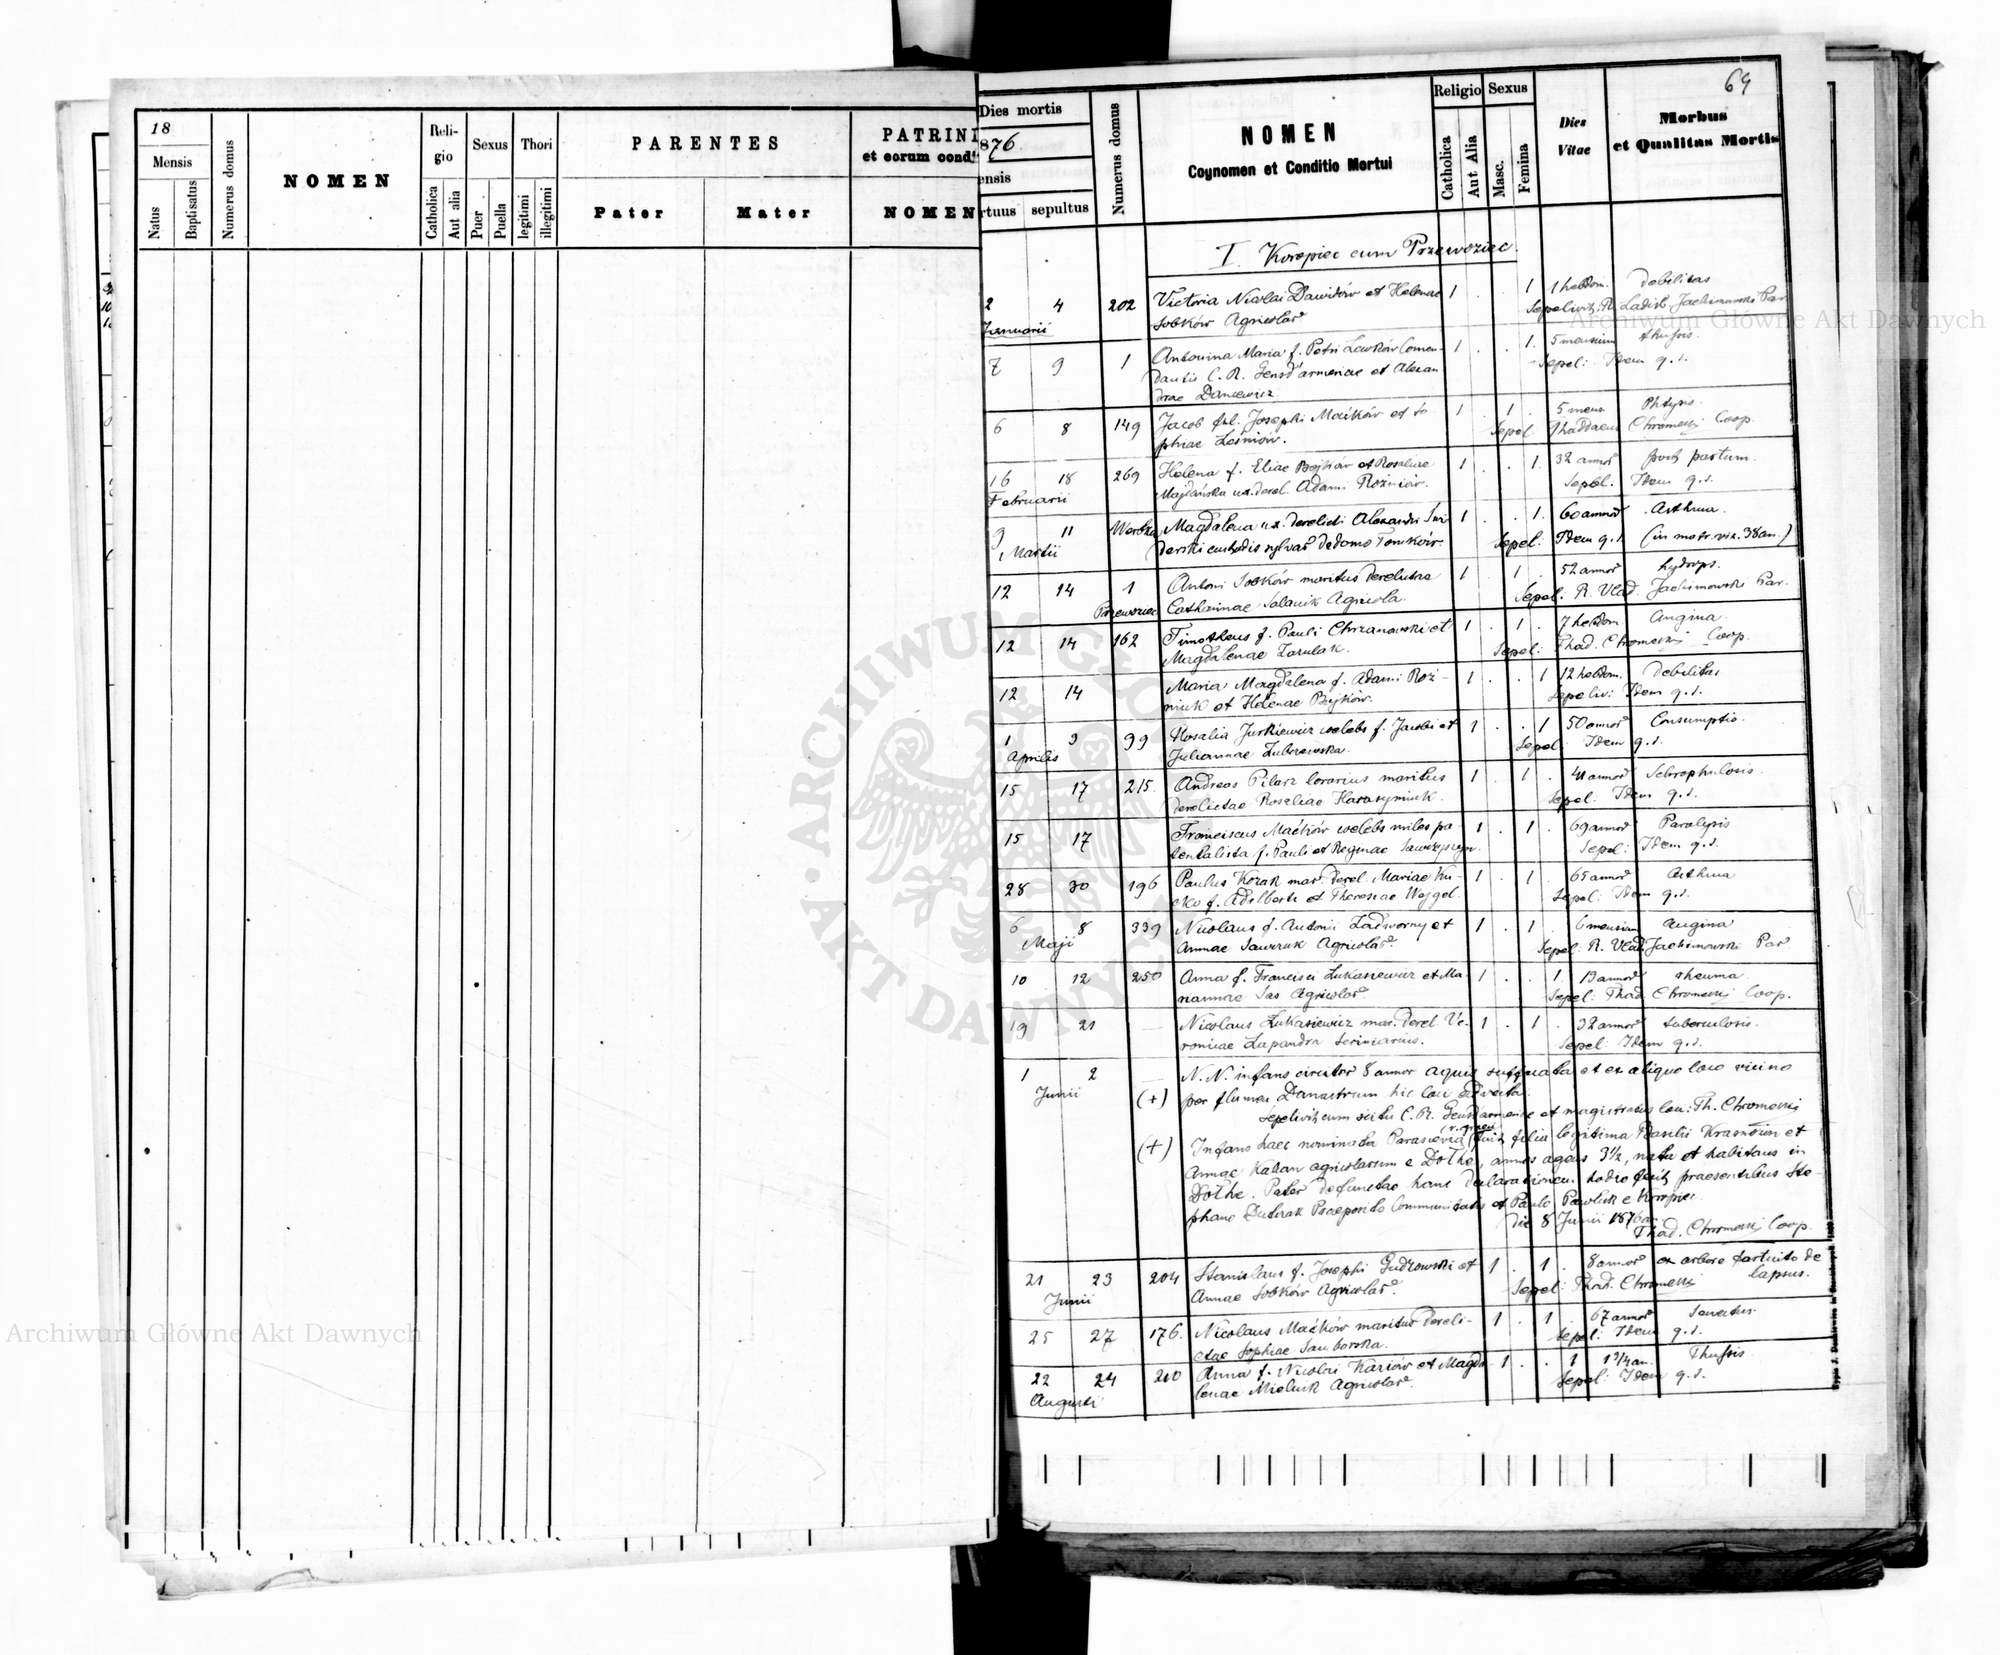 18
Mensis
Natus
Baptisatus
Numerus domus
NOMEN
Reli-
gio
Catholica
Aut alia
Sexus
Puer
Puella
Thori
legitimi
illegitimi
PARENTES
Pater
Mater
PATRINI
et eorum condi
NOMEN
69
Dies mortis
876
ensis
rtuus sepultus
Numerus domus
NOMEN
Coynomen et Conditio Mortui
Religio
Catholica
Aut Alia
Sexus
Masc.
Femina
Dies
Vitae
Morbus
et Qualitas Mortis
I. Koropiec cum Przewoziec.
2 4 202 Victoria Nicolai Dawidów et Helenae 1 . . 1 1 hebdom. Debilitas
Januarii Sobków Agricolar Sepelivit R. Ladisl. Jachimowski Par
7 9 1 Antonina Maria f. Petri Lewków Comen- 1 . . 1. 5 mensium thussis.
dantis C. R. Gensd'armeriae et Alexan Sepel: Idem q. s.
drae Daniewicz.
6 8 149 Jacob fil. Josephi Maćków et So 1 . 1 . 5 mens. Phtysis.
phiae Leśniów. Sepel. Thaddaeus Chromecki Coop.
16 18 269 Helena f. Eliae Bojków et Rosaliae 1 . . 1. 32 annor post partum.
Februarii Majdańska ux. derel. Adami Rożniów. Sepel. Idem q. s.
9 11 Magdalena ux. derelicti Alexandri Świ 1 . . 1. 60 annor Asthma.
Martii derski custodis sylvar de domo Tomków. Sepel: Idem q. s. (in matr. vix. 38 an.)
12 14 1 Antoni Sobków maritus derelictae 1 . 1 . 52 annor hydrops.
Przewoziec Catharinae Salanik Agricola. Sepel: R. Vlad. Jachimowski Par.
12 14 162 Timotheus f. Pauli Chrzanowski et 1 . 1 . 7 hebdom. Angina.
Magdalenae Zarulak. Sepel: Thad. Chromecki Coop.
12 14 Maria Magdalena f. Adami Roż- 1 . . 1 12 hebdom. Debilitas
niuk et Helenae Bojków. Sepeliv: Idem q. s.
1 3 99 Rosalia Jurkiewicz coelebs f. Jacobi et 1 . . 1 50 annor Consumptio.
Aprilis Juliannae Zubrzewska. Sepel: Idem q. s.
15 17 215. Andreas Pilarz lorarius maritus 1 . 1 . 41 annor Schrophulosis.
derelictae Rosaliae Harasymiuk. Sepel: Idem q. s.
15 17 Franciscus Maćków coelebs miles pa- 1 . 1 . 69 annor Paralysis
tentalista f. Pauli et Reginae Sepel: Idem q. s.
28 30 196 Paulus Kozak mar. derel. Mariae Ku- 1 . 1 . 65 annor Asthma
cko f. Adalberti et Theresiae Wajgel. Sepel: Idem q. s.
6 8 339 Nicolaus f. Antonii Zadworny et 1 . 1 . 6 mensium Angina
Maji Annae Sawczuk Agricolar. Sepel: R. Vlad. Jachimowski Par
10 12 250 Anna f. Francisci Łukasiewicz et Ma- 1 . . 1. 19 annor rheuma.
riannae Sas Agricolar. Sepel: Thad. Chromecki Coop.
19 21 — Nicolaus Łukasiewicz mar. derel. Ve- 1 . 1 . 32 annor tuberculosis.
ronicae Łapandra scriniarius. Sepel: Idem q. s.
1 2 — N. N. infans circiter 8 annor aquis suffocata et ex aliquo loco vicino
Junii (+) per flumen Danastrum hic loci advecta.
Sepelivit cum scitu C. R. Gensdarmeriae et magistratus loci: Th. Chromecki
(+) Infans haec nominata Parascevia fuit filia legitima Basilii Krasnosiin et
Annae Kaban agricolarum e Dołhe, annos agens 3 1/2, nata et habitans in
Dołhe. Pater defunctae hanc declarationem hodie fecit praesentibus Ste-
phano Dutczak Praeposito Communitatis et Paulo Pawluk e Koropiec.
Die 8 Junii 1876 a.
Thad. Chromecki Coop.
21 23 204 Stanislaus f. Josephi Gudzowski et 1 . 1 . 8 annor ex arbore fortuito de
Junii Annae Sobków Agricolar. Sepel: Thad. Chromecki lapsus.
25 27 176. Nicolaus Maćków maritus dereli- 1 . 1 . 67 annor Senectus.
ctae Sophiae Samborska. Sepel: Idem q. s.
22 24 210 Anna f. Nicolai Kariów et Magda 1 . . 1 1 3/4 an. Thussis.
Augusti lenae Mielnik Agricolar. Sepel: Idem q. s.
Archiwum Główne Akt Dawnych
Archiwum Główne Akt Dawnych
ARCHIWUM GŁÓWNE
AKT DAWNYCH